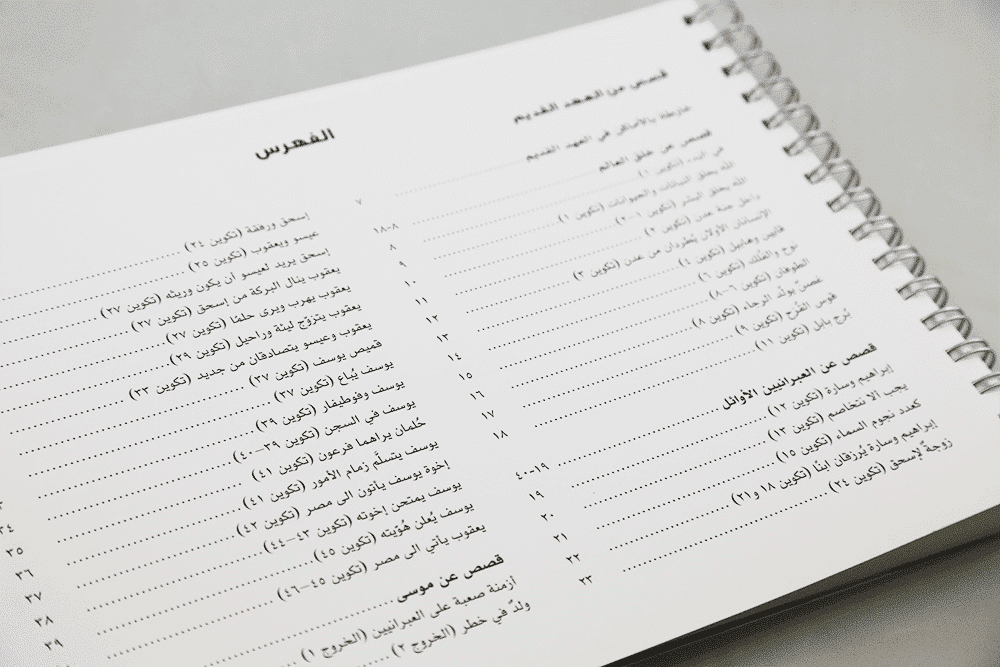 الفهرس
قصص من العهد القديم
خارطة بالأماكن في العهد القديم ٧
قصص عن خلق العالم ٨-١٨
في البدء (تكوين ١) ٨
الله يخلق النباتات والحيوانات (تكوين ١) ٩
الله يخلق البشر (تكوين ١-٢) ١٠
داخل جنة عدن (تكوين ٢) ١١
الإنسانان الأولان يُطردان من عدن (تكوين ٣) ١٢
قايين وهابيل (تكوين ٤) ١٣
نوح والفُلك (تكوين ٦) ١٤
الطوفان (تكوين ٦-٨) ١٥
غصنٌ يولّد الرجاء (تكوين ٨) ١٦
قوس القزح (تكوين ٩) ١٧
بُرج بابل (تكوين ١١) ١٨
قصص عن العبرانيين الأوائل ١٩-٤٠
إبراهيم وسارة (تكوين ١٢) ١٩
يجب الا نتخاصم (تكوين ١٣) ٢٠
كعدد نجوم السماء (تكوين ١٥) ٢١
إبراهيم وسارة يُرزقان ابنًا (تكوين ١٨ و٢١) ٢٢
زوجةٌ لإسحق (تكوين ٢٤) ٢٣
إسحق ورفقة (تكوين ٢٤)
عيسو ويعقوب (تكوين ٢٥)
إسحق يريد لعيسو أن يكون وريثه (تكوين ٢٧)
يعقوب ينال البركة من إسحق (تكوين ٢٧)
يعقوب يهرب ويرى حلمًا (تكوين ٢٧)
يعقوب يتزوّج ليئة وراحيل (تكوين ٢٩)
يعقوب وعيسو يتصادقان من جديد (تكوين ٣٣)
قميص يوسف (تكوين ٣٧)
يوسف يُباع (تكوين ٣٧)
يوسف وفوطيفار (تكوين ٣٩)
يوسف في السجن (تكوين ٣٩-٤٠)
حُلمان يراهما فرعون (تكوين ٤١) ٣٤
يوسف يتسلّم زمام الأمور (تكوين ٤١) ٣٥
إخوة يوسف يأتون الى مصر (تكوين ٤٢) ٣٦
يوسف يمتحن إخوته (تكوين ٤٣-٤٤) ٣٧
يوسف يُعلن هُوّيته (تكوين ٤٥) ٣٨
يعقوب يأتي الى مصر (تكوين ٤٥-٤٦) ٣٩
قصص عن موسى
أزمنة صعبة على العبرانيين (الخروج ١)
ولدٌ في خطر (الخروج ٢)